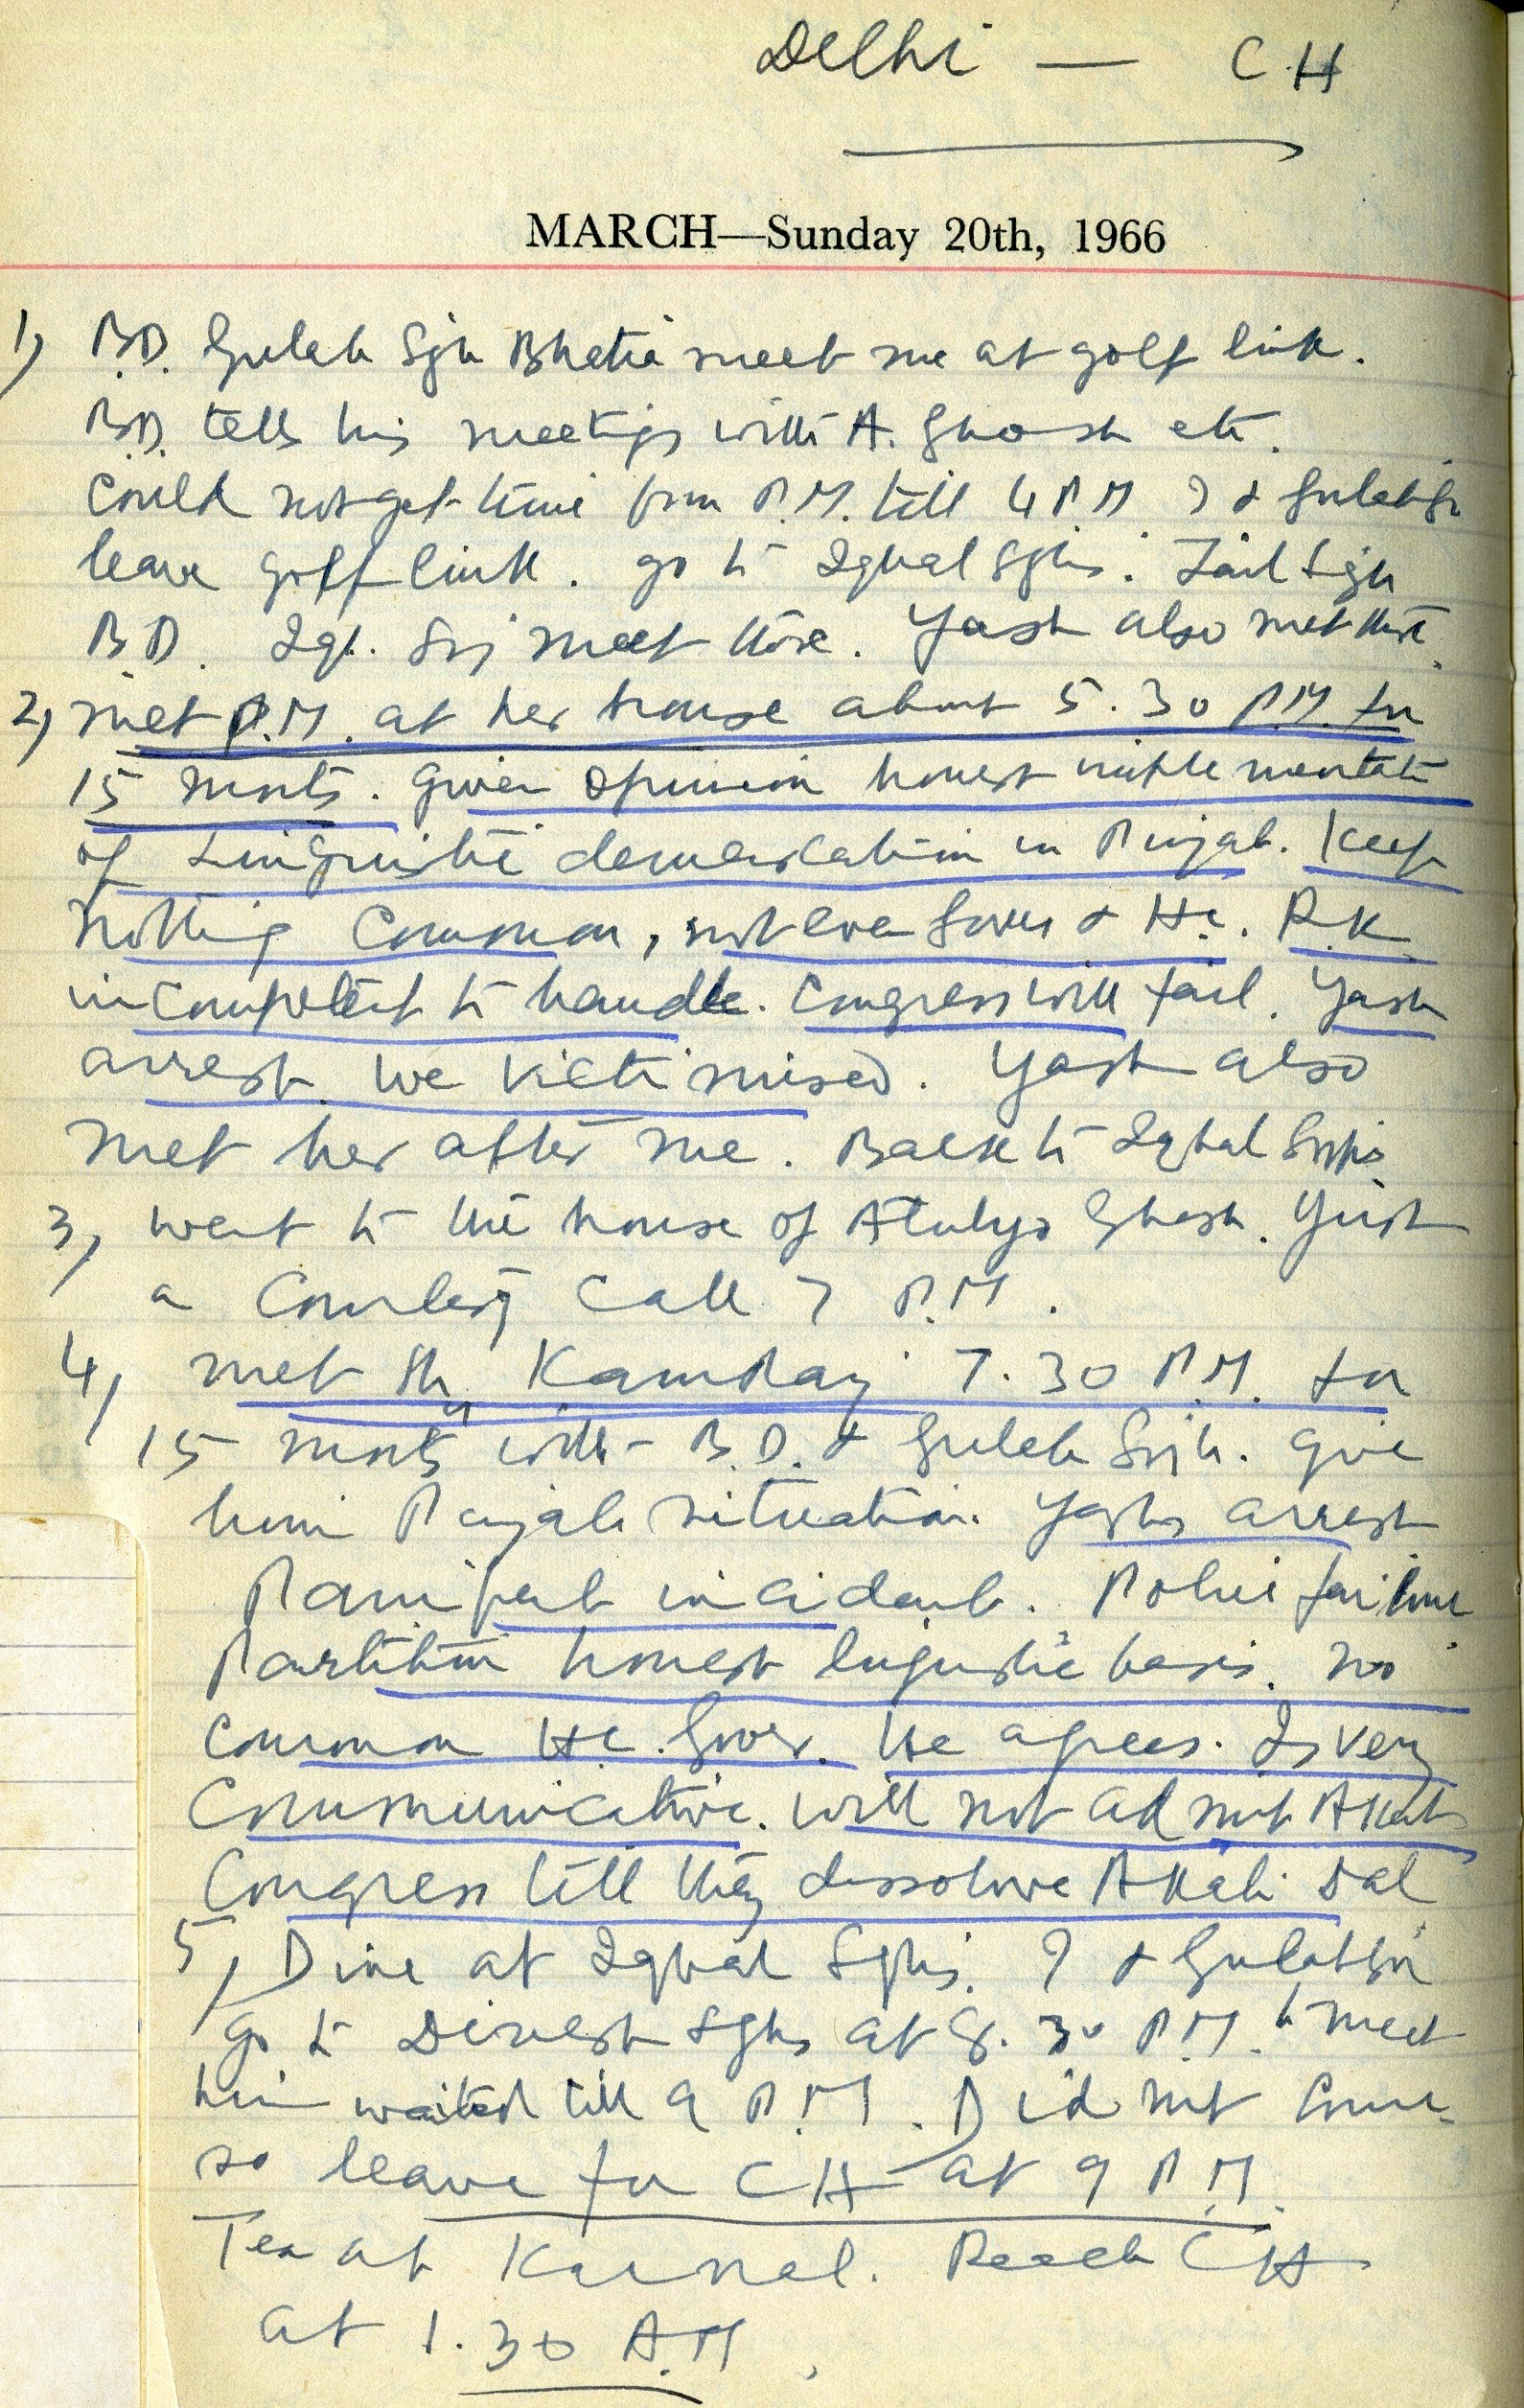 Delhi — CH
MARCH—Sunday 20th, 1966
1) B.D. Gulab Sgh Bhatia meet me at golf link.
B.D. tells his meetings with A. Ghosh etc.
Could not get time from P.M. till 4 P.M. I & Gulab Sgh
leave golf link. go to Iqbal Sghs. Zail Sgh
B.D. Iqb. Sgh meet there. Yash also met there.
2) met P.M. at her house about 5.30 P.M. for
15 mnts. given opinion honest implementation
of Linguistic demarcation in Punjab. Keep
nothing Common, not even Gover & H.C. R.K
incompetent to handle. Congress will fail. Yash
arrest. We victimised. Yash also
met her after me. Back to Iqbal Sghs
3) went to the house of Atulya Ghosh. Just
a Courtesy Call 7 P.M.
4) met Sh. Kamraj 7.30 P.M. for
15 mnts with B.D. & Gulab Sgh. give
him Punjab situation. Yash's arrest
Panipat incident. Police failure
Partition honest linguistic basis. no
common H.C. Gover. He agrees. Is very
Communicative. will not admit Akalis
Congress till they dissolve Akali Dal
5) Dine at Iqbal Sghs. I & Gulab Sgh
go to Dinesh Sghs at 8.30 P.M. to meet
him waited till 9 P.M. Did not come
so leave for CH at 9 P.M.
Tea at Karnal. Reach CH
at 1.30 A.M.